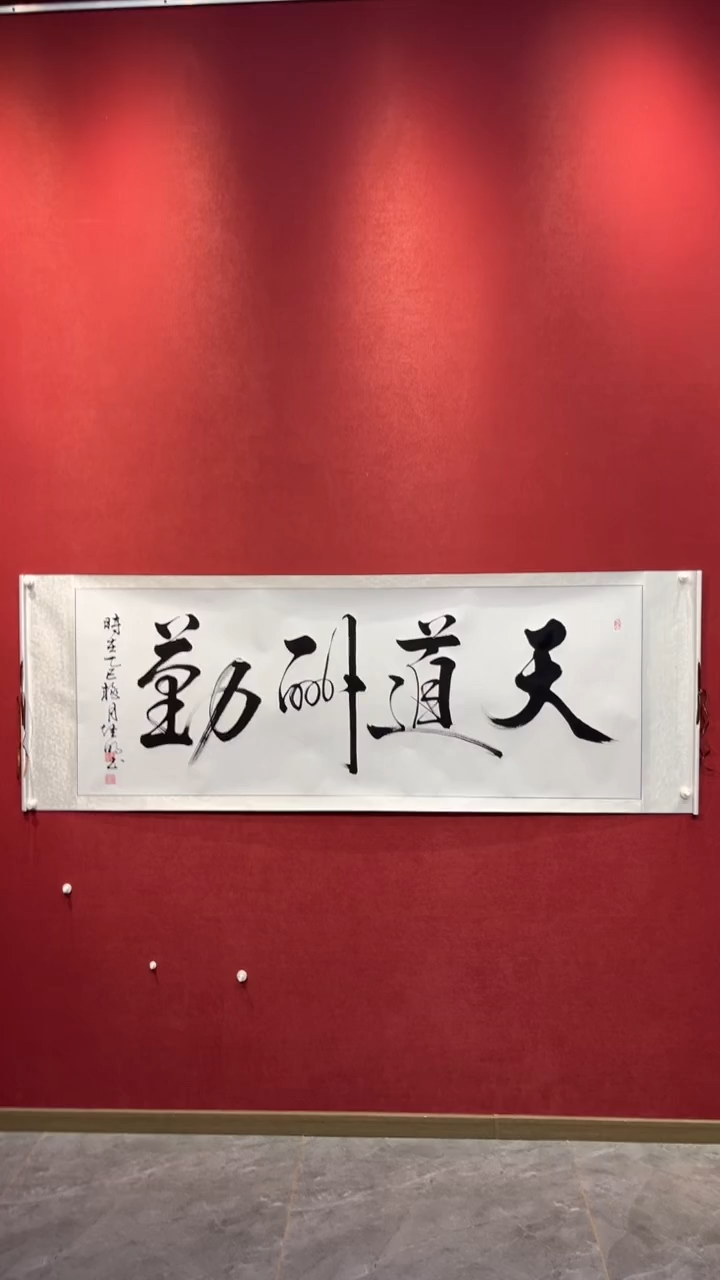 天道酬勤
時在乙巳梅月